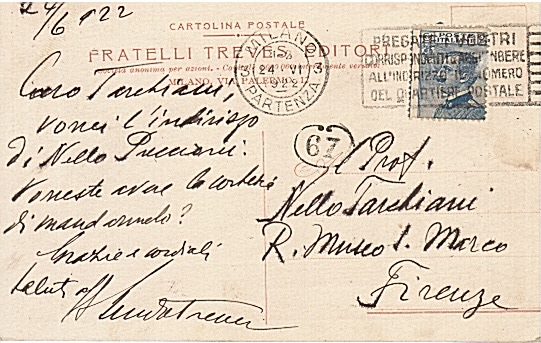 24/6 922
CARTOLINA POSTALE
FRATELLI TREVES EDITORI
Società anonima per azioni. - Capitale
MILANO, VIA PALERMO, 12
MILANO
24 VI
1922
PARTENZA
PREGATE I VOSTRI
CORRISPONDENTI D'AGGIUNGERE
ALL'INDIRIZZO IL NUMERO
DEL QUARTIERE POSTALE
67
Caro Tarchiani,
vorrei l'indirizzo
di Nello Puccioni.
Voreste avere la cortesia
di mandarmelo?
Grazie e cordiali
saluti
Al Prof.
Nello Tarchiani
R. Museo S. Marco
Firenze